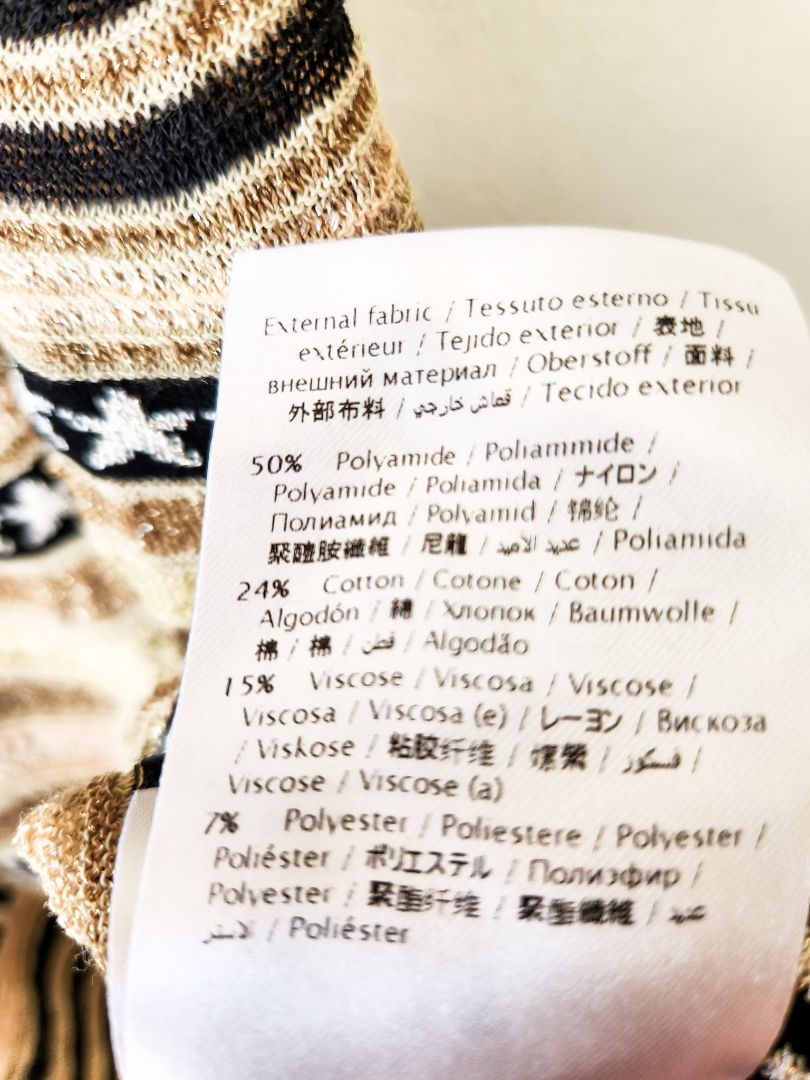 External fabric / Tessuto esterno / Tissu
extérieur / Tejido exterior / 表地 /
внешний материал / Oberstoff / 面料 /
外部布料 / قماش خارجي / Tecido exterior
50% Polyamide / Poliammide /
Polyamide / Poliamida / ナイロン /
Полиамид / Polyamid / 锦纶 /
聚醯胺纖維 / 尼龍 / عديد الأميد / Poliamida
24% Cotton / Cotone / Coton /
Algodón / 綿 / Хлопок / Baumwolle /
棉 / 棉 / قطن / Algodão
15% Viscose / Viscosa / Viscose /
Viscosa / Viscosa (e) / レーヨン / Вискоза
/ Viskose / 粘胶纤维 / 嫘縈 / فسكوز /
Viscose / Viscose (a)
7% Polyester / Poliestere / Polyester /
Poliéster / ポリエステル / Полиэфир /
Polyester / 聚酯纤维 / 聚酯纖維 / عديد
الاستر / Poliéster